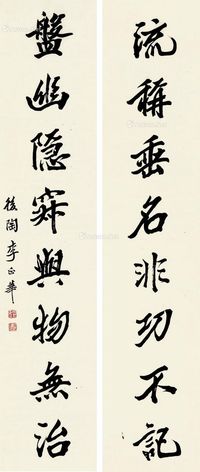 流稱垂名非功不記
盤幽隱窔與物無治
後陶李正華